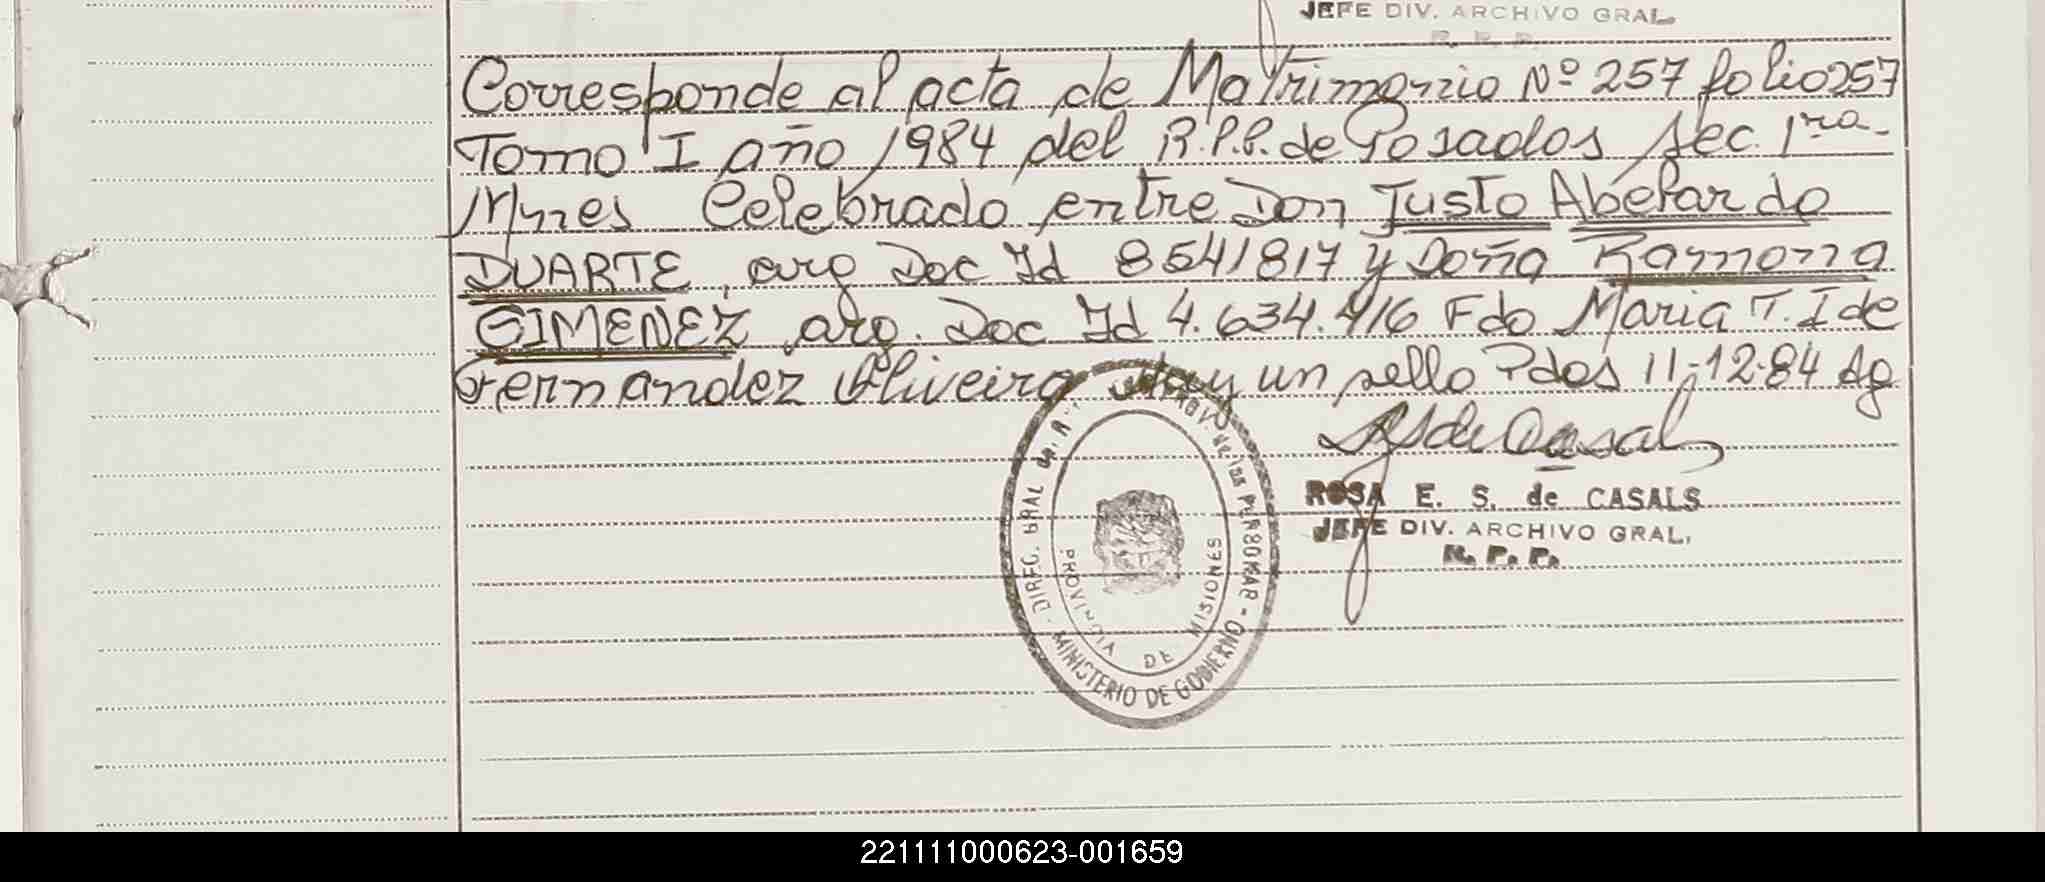 JEFE DIV. ARCHIVO GRAL.
R. P. P.
Corresponde al acta de Matrimonio Nº 257 folio 257
Tomo I año 1984 del R.P.P. de Posadas Sec. 1ra.
Mnes Celebrado entre Don Justo Abelardo
DUARTE, arg Doc Id 8541817 y Doña Ramona
GIMENEZ arg. Doc Id 4.634.416 Fdo Maria T. I de
Fernandez Oliveira Hay un sello Pdas 11-12-84 Ag
de Casals
ROSA E. S. de CASALS
JEFE DIV. ARCHIVO GRAL.
R. P. P.
DIREC. GRAL PROV. de las PERSONAS - MINISTERIO DE GOBIERNO
PROVINCIA DE MISIONES
221111000623-001659